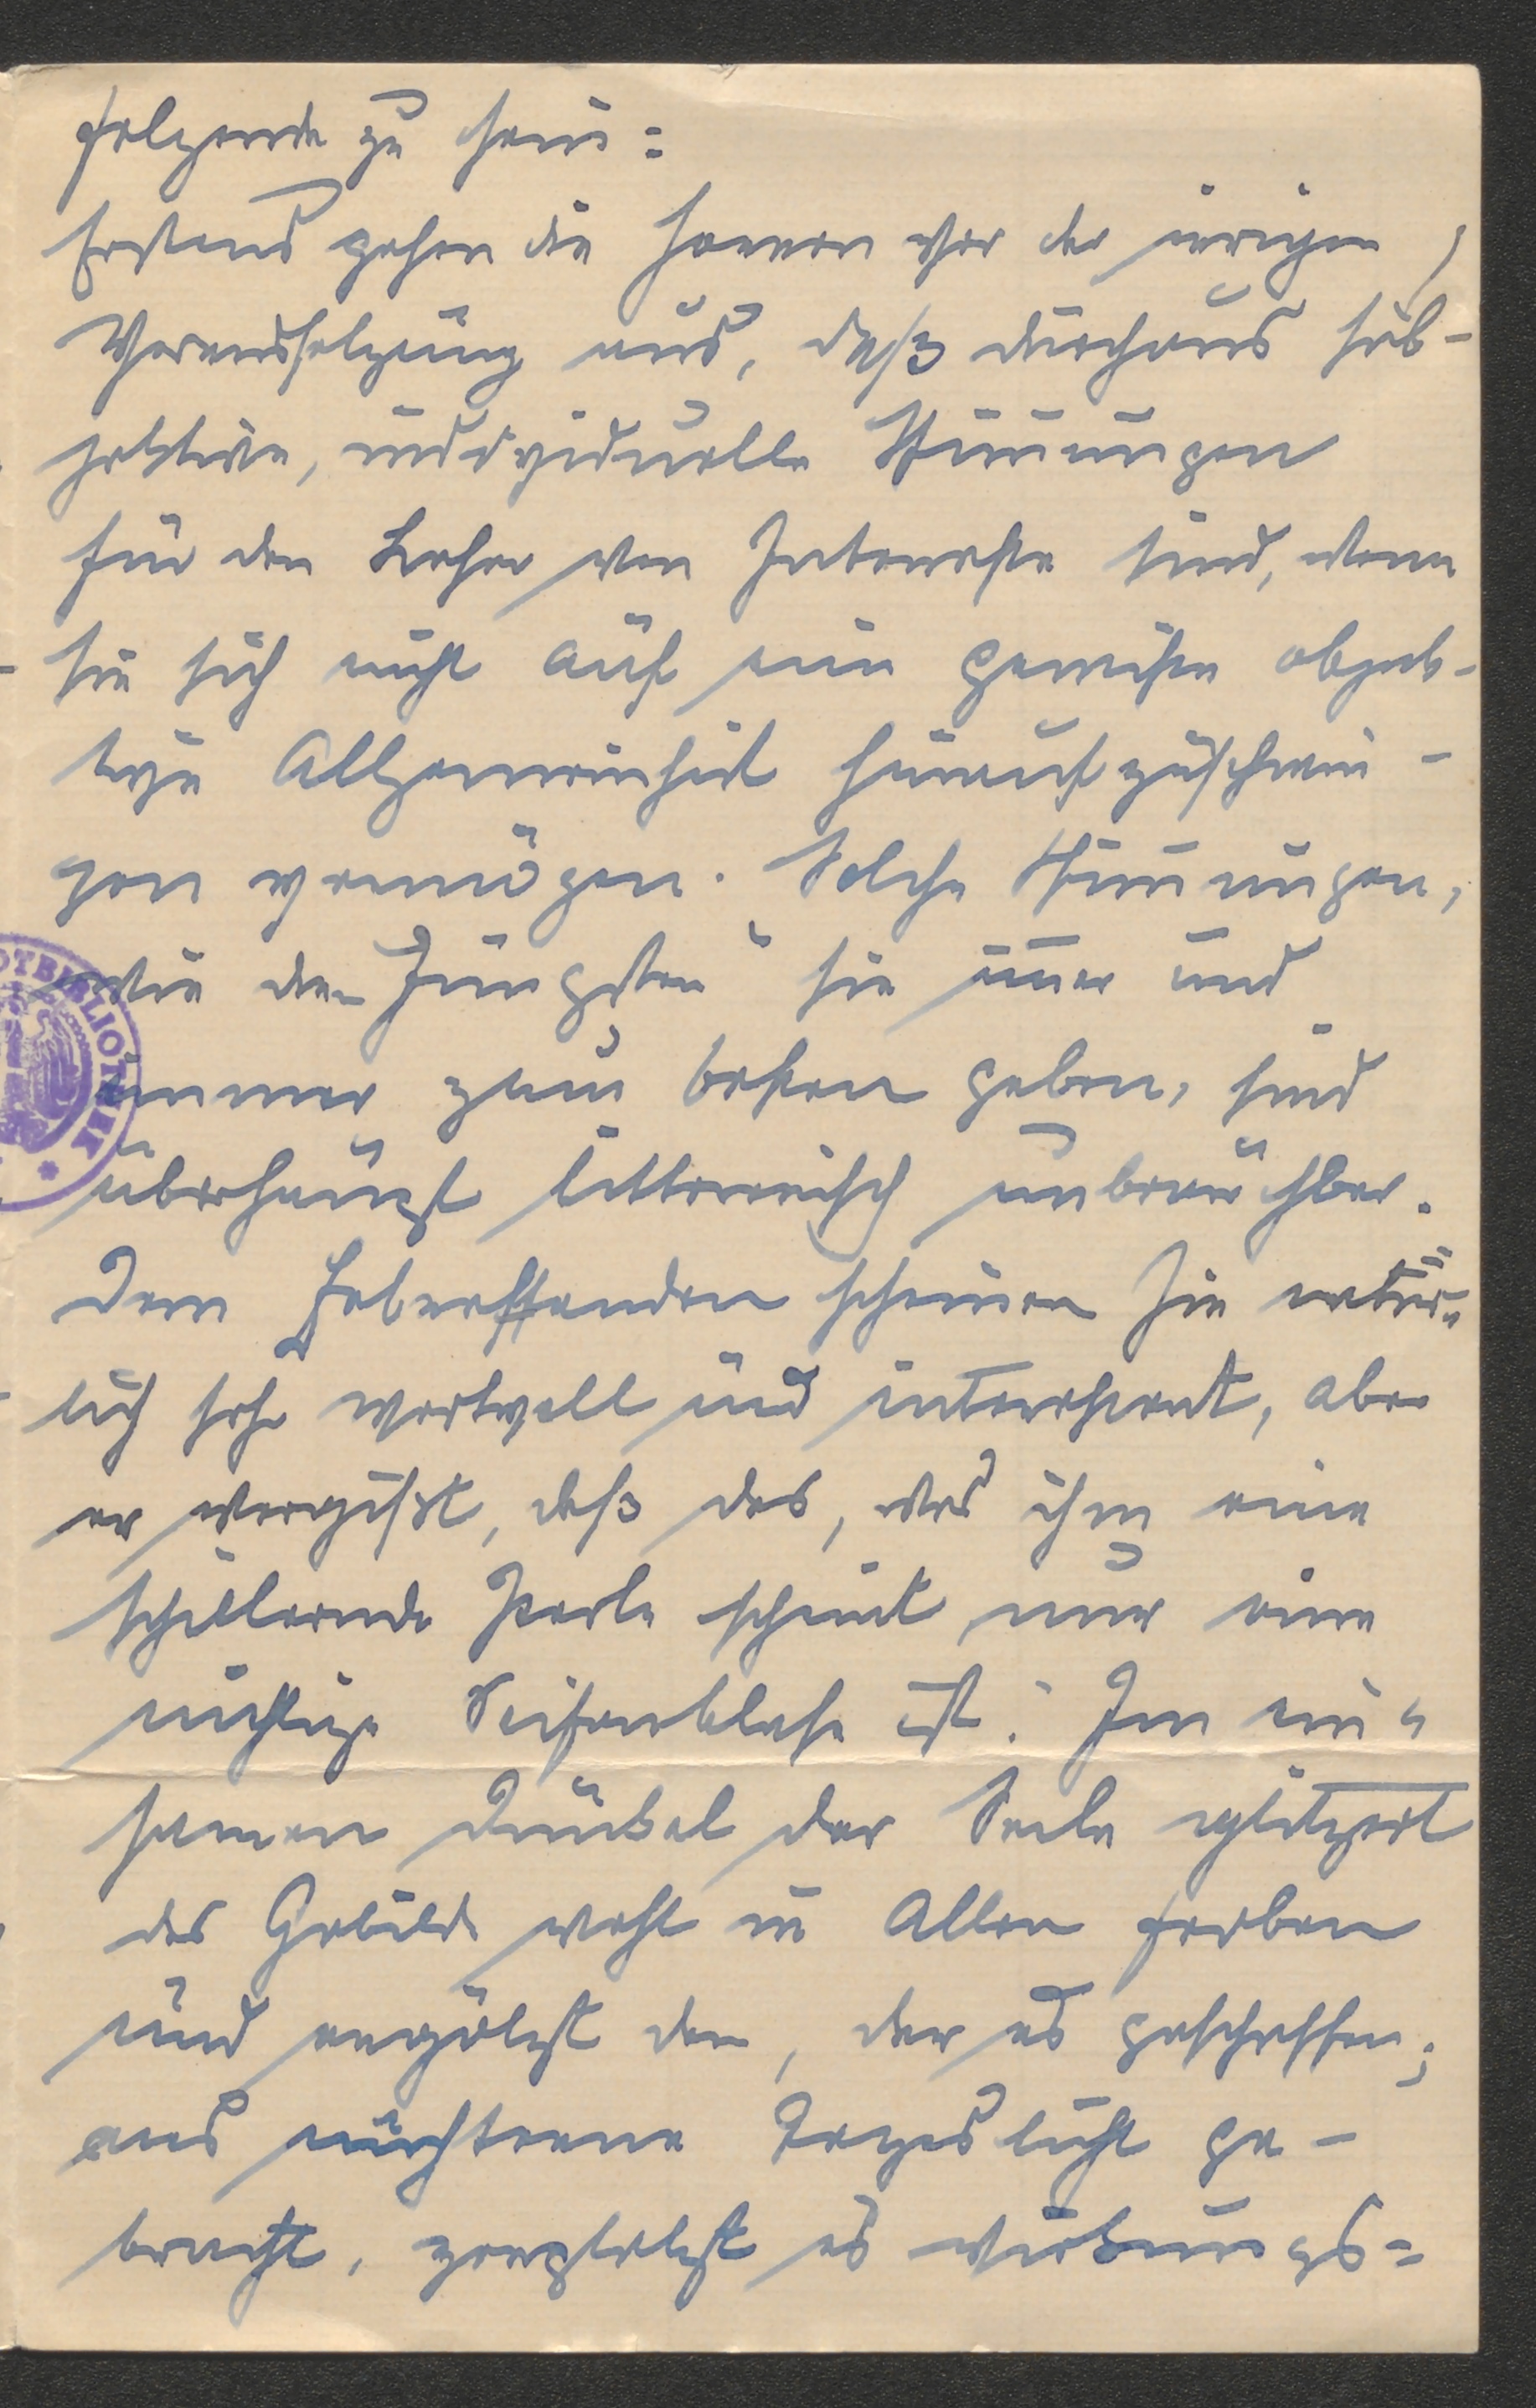 folgende zu sein:
Erstens gehen die Herren von der irrigen
Voraussetzung aus, daß durchaus sub-
jektive, individuelle Stimmungen
für den Leser von Interesse sind, wenn
sie sich nicht auf eine gewisse objek-
tive Allgemeinheit hinaufzuschwin-
gen vermögen. Solche Stimmungen,
wie die „Jüngsten“ sie immer und
immer zum besten geben, sind
überhaupt litterarisch unbrauchbar.
Dem Schaffenden scheinen sie natür-
lich sehr wertvoll und interessant, aber
er vergißt, daß das, was ihm eine
schillernde Perle scheint, nur eine
nichtige Seifenblase ist. Im ein-
samen Dunkel der Seele glitzert
das Gebilde wohl in allen Farben
und ergötzt den, der es geschaffen;
ans nüchterne Tageslicht ge-
bracht, zerplatzt es wirkungs-
OTBIBLIOTHEK